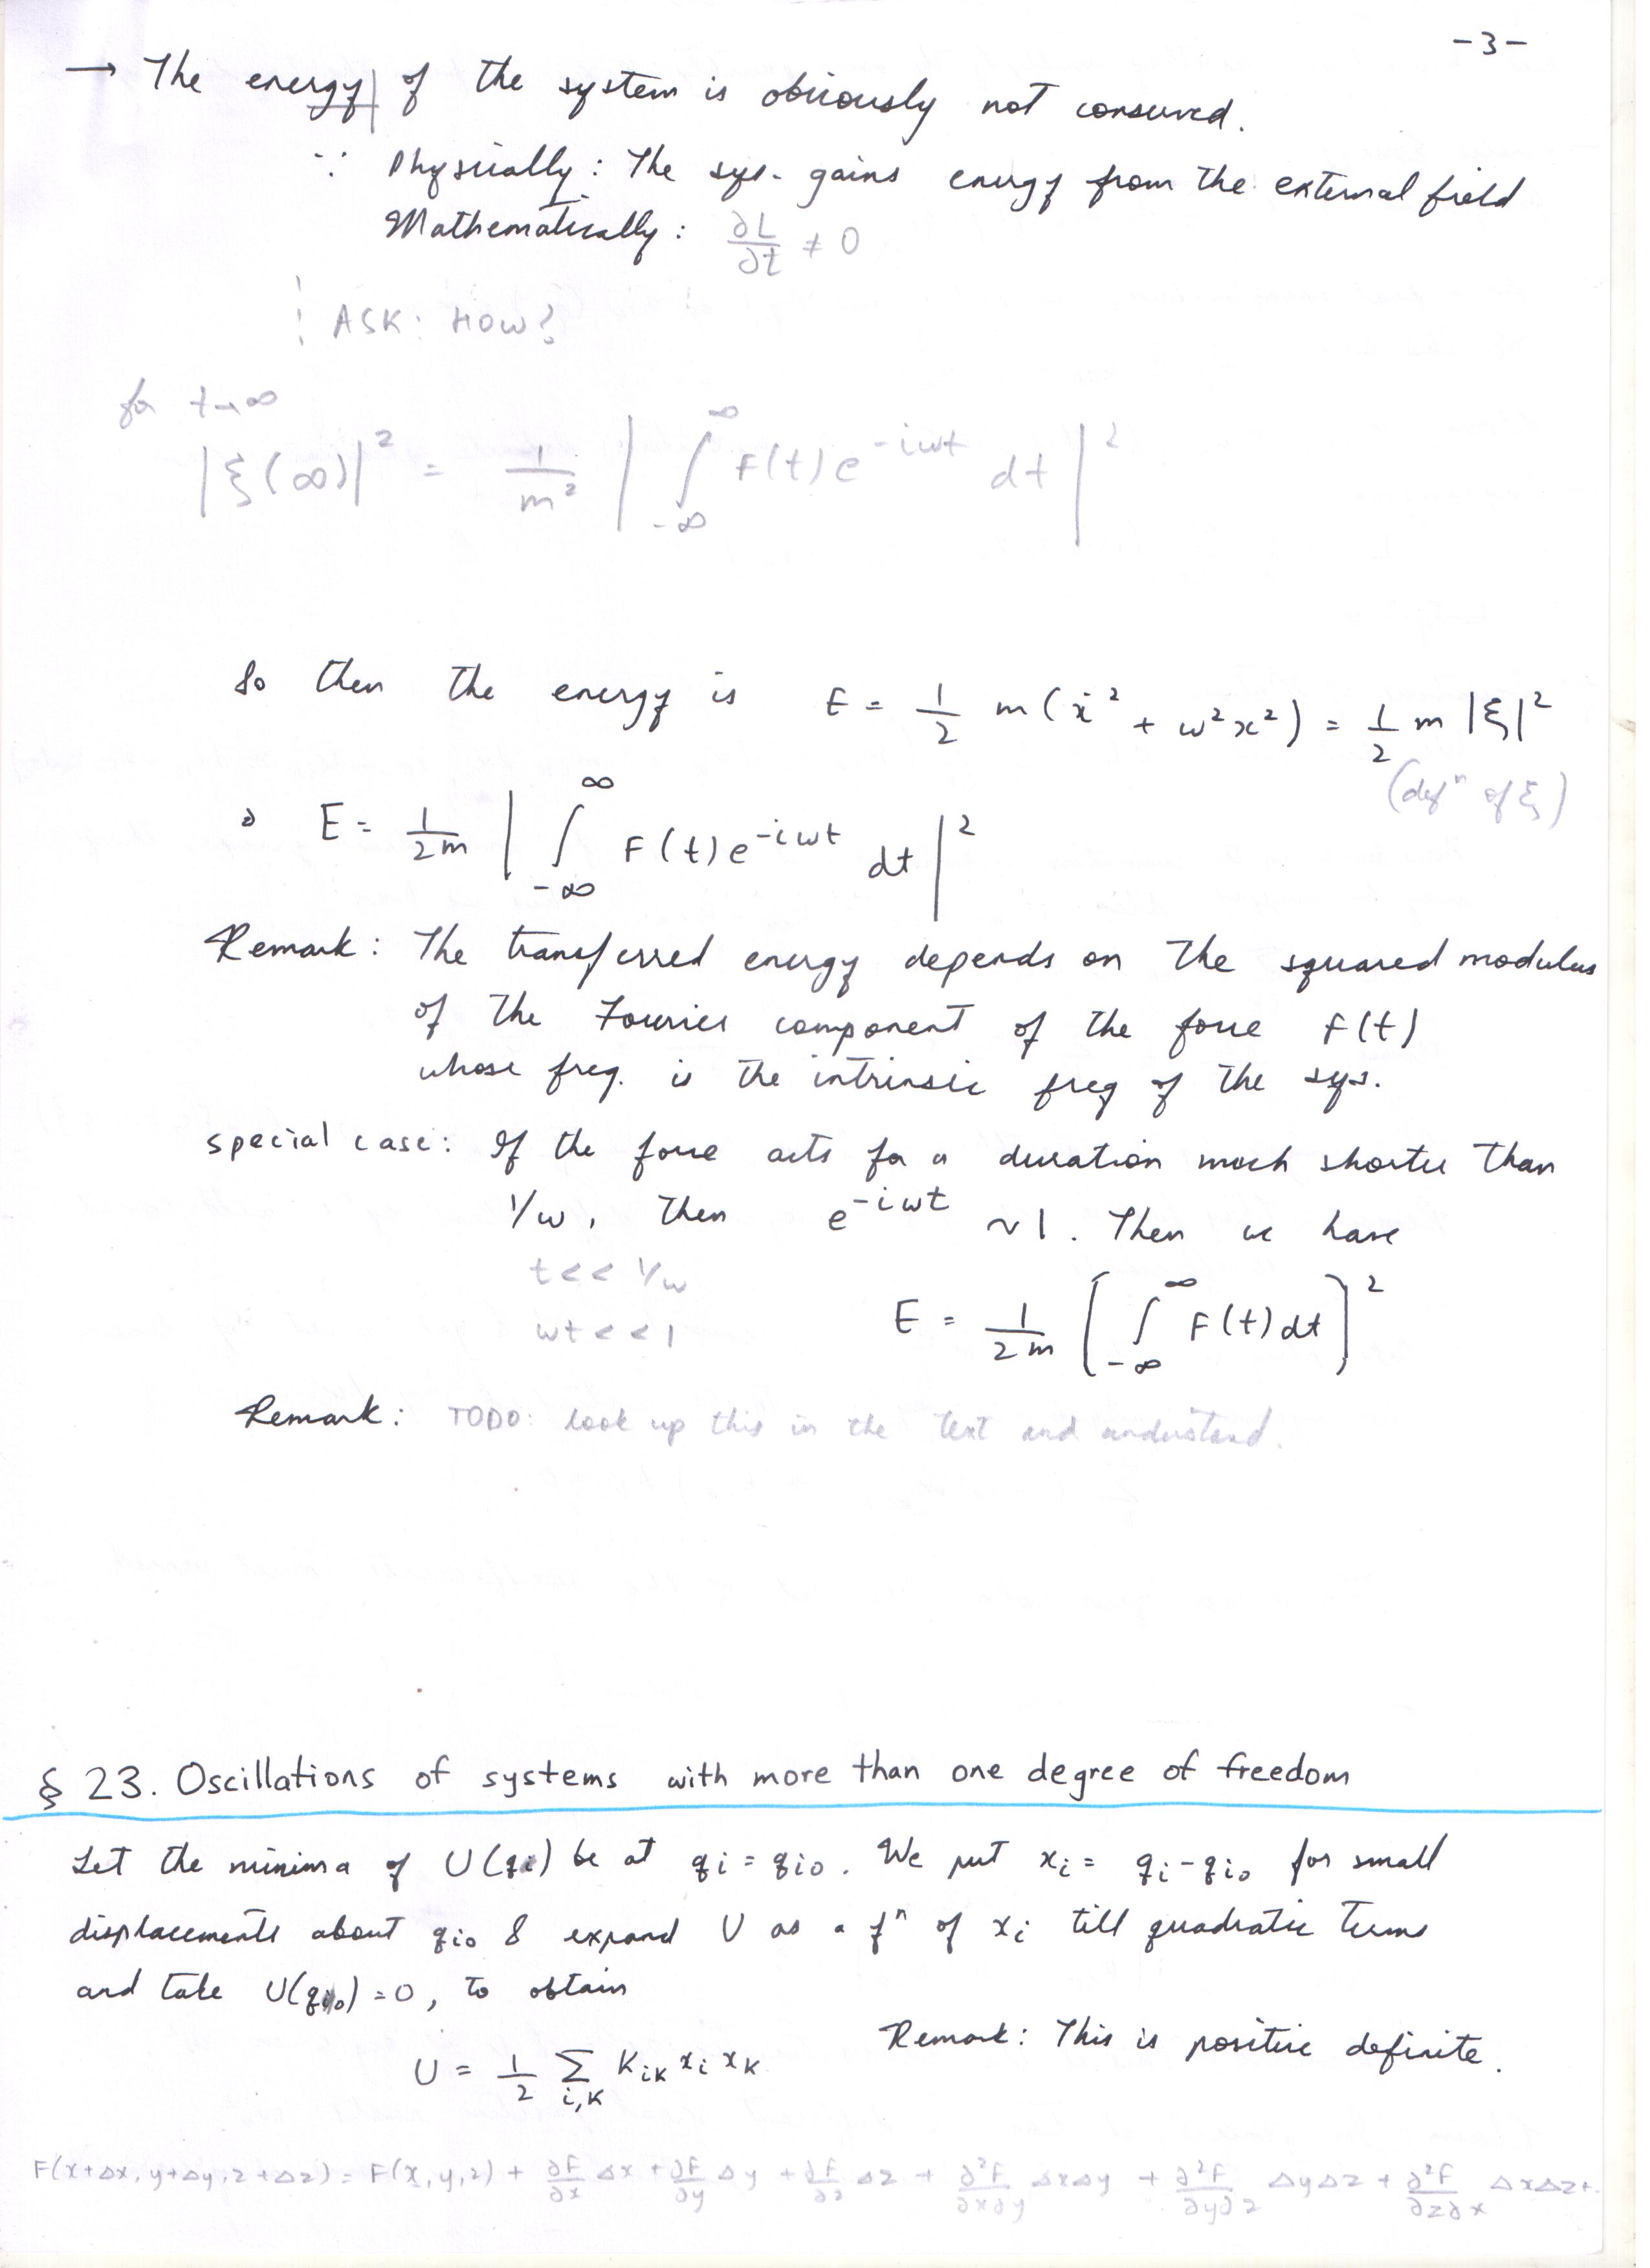 -3-
→ The energy of the system is obviously not conserved.
∵ Physically: The sys. gains energy from the external field
Mathematically: ∂L/∂t ≠ 0
! ASK: HOW?
for t→∞
|ξ(∞)|² = 1/m² | ∫_{-∞}^{∞} F(t) e^{-iωt} dt |²
So then the energy is E = 1/2 m(ẋ² + ω²x²) = 1/2 m |ξ|²
(defⁿ of ξ)
E = 1/2m | ∫_{-∞}^{∞} F(t) e^{-iωt} dt |²
Remark: The transferred energy depends on the squared modulus
of the Fourier component of the force F(t)
whose freq. is the intrinsic freq of the sys.
special case: If the force acts for a duration much shorter than
1/ω, then e^{-iωt} ~ 1. Then we have
t << 1/ω
ωt << 1
E = 1/2m [ ∫_{-∞}^{∞} F(t) dt ]²
Remark: TODO: look up this in the text and understand.
§ 23. Oscillations of systems with more than one degree of freedom
Let the minima of U(qi) be at qi = qio. We put xi = qi - qio for small
displacements about qio & expand U as a fⁿ of xi till quadratic terms
and take U(qio) = 0, to obtain
Remark: This is positive definite.
U = 1/2 Σ_{i,k} Kik xi xk
F(x+Δx, y+Δy, z+Δz) = F(x,y,z) + ∂F/∂x Δx + ∂F/∂y Δy + ∂F/∂z Δz + ∂²F/∂x∂y ΔxΔy + ∂²F/∂y∂z ΔyΔz + ∂²F/∂z∂x ΔxΔz+..